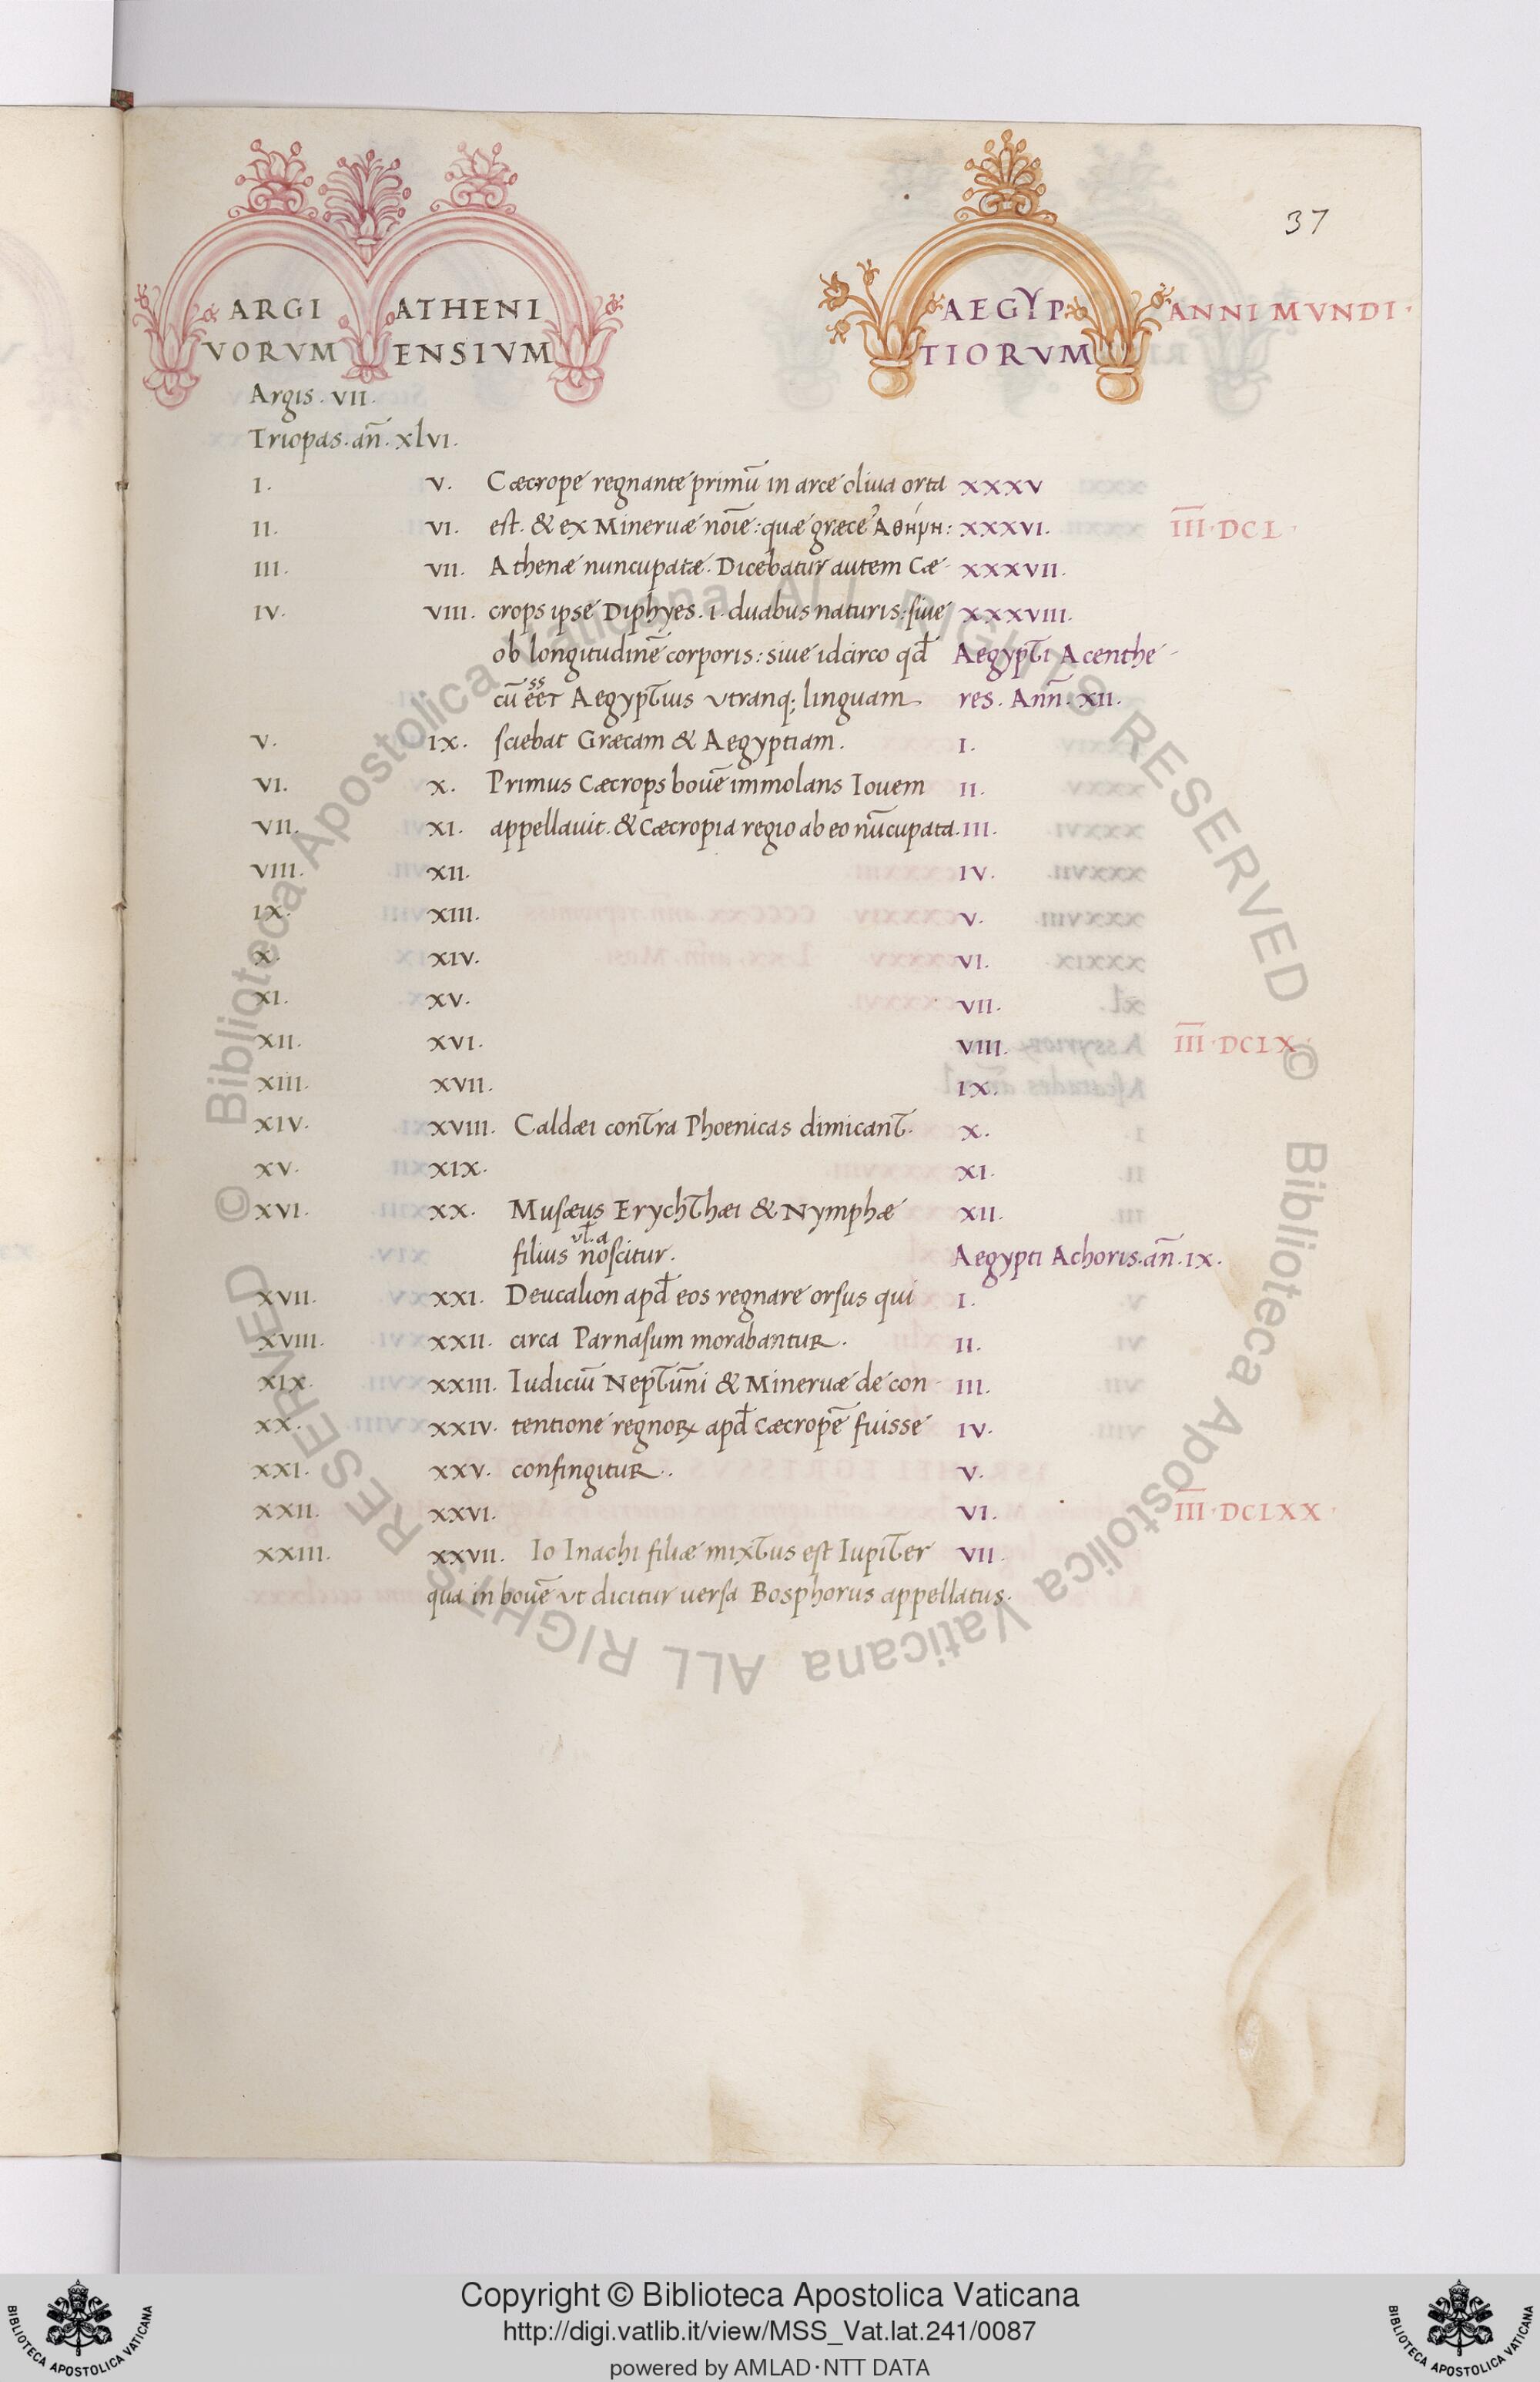 37
ARGI ATHENI AEGYP ANNI MVNDI·
VORVM ENSIVM TIORVM
Argis. VII.
Triopas. an̄. xlvi.
I. V. Cæcrope regnante primū in arce oliua orta XXXV
II. VI. est. & ex Mineruæ noīe: quæ græce Ἀθήνη: XXXVI. I̅I̅I̅·DCL·
III. VII. Athenæ nuncupatæ. Dicebatur autem Cæ- XXXVII.
IV. VIII. crops ipse Diphyes. i. duabus naturis: siue XXXVIII.
ob longitudinē corporis: siue idcirco qd̄ Aegypti Acenthe-
ss
cū eēt Aegyptius vtranq; linguam res. Ann̄. XII.
V. IX. sciebat Græcam & Aegyptiam. I.
VI. X. Primus Cæcrops bouē immolans Iouem II.
VII. XI. appellauit. & Cæcropia regio ab eo nūcupata. III.
VIII. XII. IV.
IX. XIII. V.
X. XIV. VI.
XI. XV. VII.
XII. XVI. VIII. I̅I̅I̅·DCLX·
XIII. XVII. IX.
XIV. XVIII. Caldæi contra Phoenicas dimicant. X.
XV. XIX. XI.
XVI. XX. Musæus Erychthæi & Nymphæ XII.
vl̄.a
filius noscitur. Aegypti Achoris. an̄. IX.
XVII. XXI. Deucalion apd̄ eos regnare orsus qui I.
XVIII. XXII. circa Parnasum morabantur. II.
XIX. XXIII. Iudiciū Neptūni & Mineruæ de con- III.
XX. XXIV. tentione regnoꝝ apd̄ Cæcropē fuisse IV.
XXI. XXV. confingitur. V.
XXII. XXVI. VI. I̅I̅I̅·DCLXX·
XXIII. XXVII. Io Inachi filiæ mixtus est Iupiter VII.
qua in bouē vt dicitur uersa Bosphorus appellatus.
© Biblioteca Apostolica Vaticana ALL RIGHTS RESERVED
© Biblioteca Apostolica Vaticana ALL RIGHTS RESERVED
Copyright © Biblioteca Apostolica Vaticana
http://digi.vatlib.it/view/MSS_Vat.lat.241/0087
powered by AMLAD·NTT DATA
BIBLIOTECA APOSTOLICA VATICANA
BIBLIOTECA APOSTOLICA VATICANA